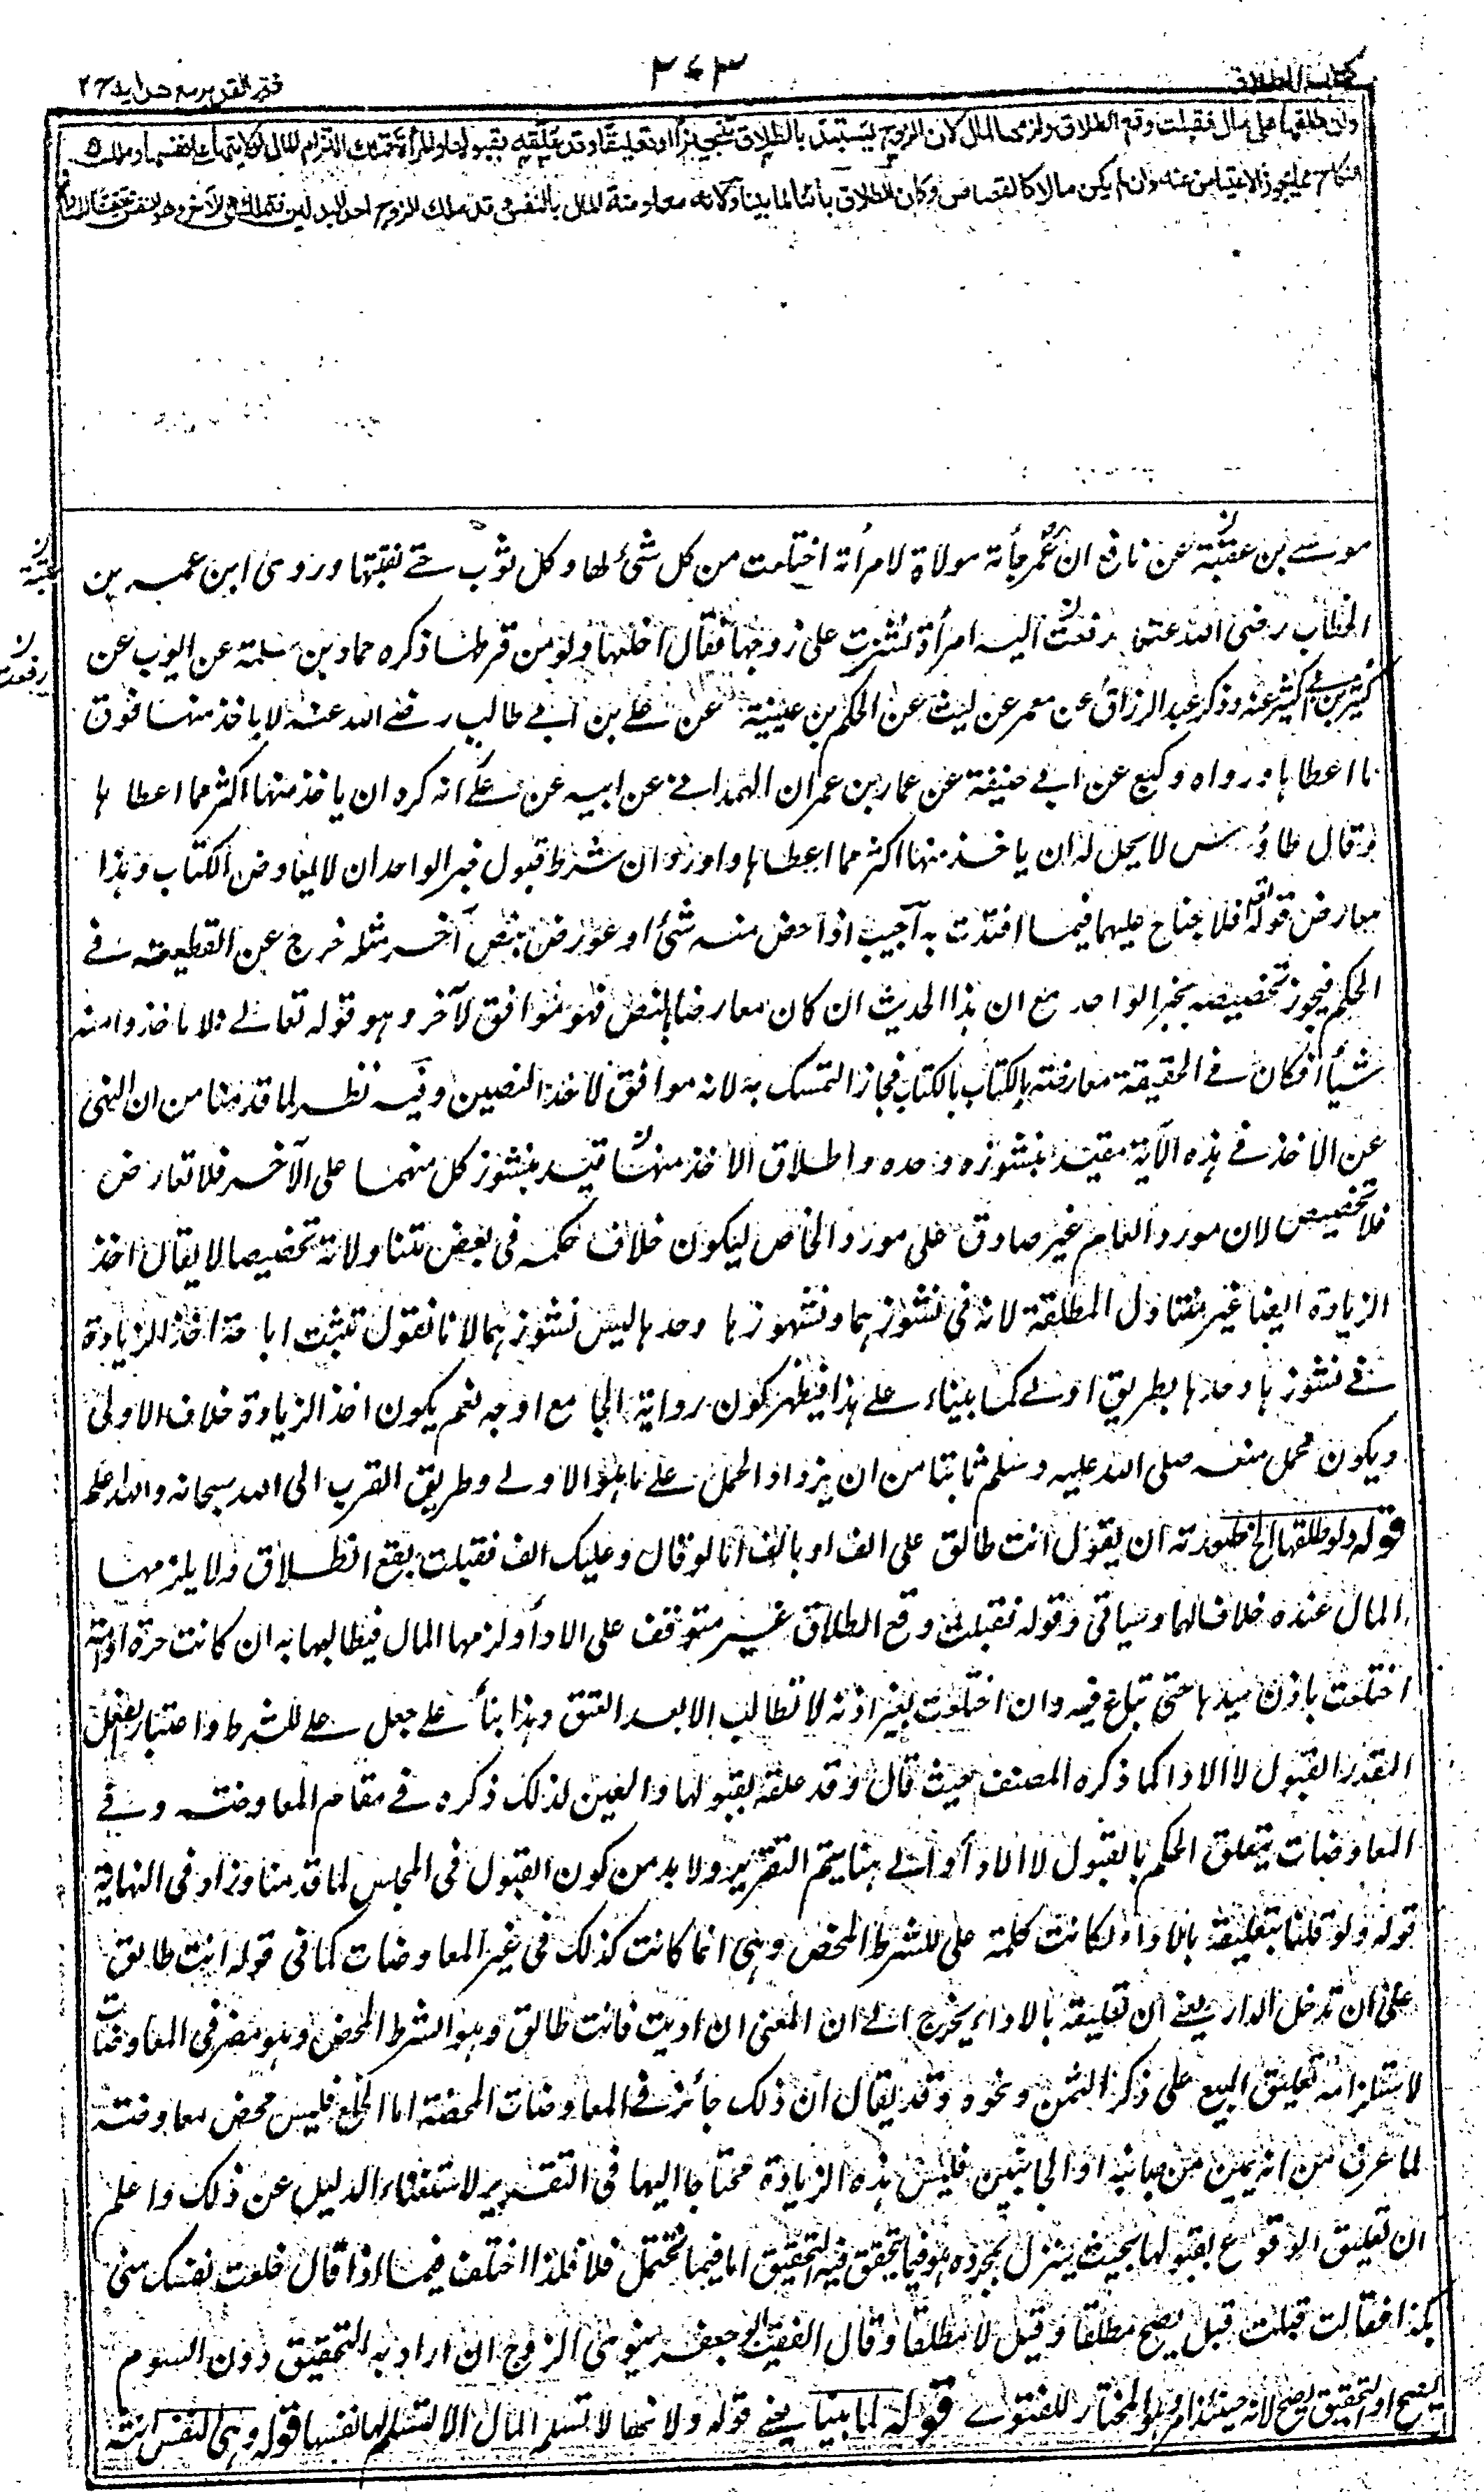 كتاب الطلاق
٣٧٣
فتح القدير مع هداية ج٢
وان طلقها على مال فقبلت وقع الطلاق ولزمها المال لان الزوج يستبد بالطلاق تنجيزا او تعليقا وقد علقه بقبولها والمرأة تملك التزام المال لولايتها على نفسها وملك
النكاح مما يجوز الاعتياض عنه وان لم يكن مالا كالقصاص وكان الطلاق بائنا لما بينا ولانه معاوضة المال بالنفس وقد ملك الزوج احد البدلين فتملك هى الآخر وهو النفس تحقيقا للمساواة
موسے بن عقبة عن نافع ان عمر جأته مولاة لامرأته اختلعت من كل شئ لها وكل ثوب حتے نقبتها وروى ابن عمر بن
الخطاب رضى الله عنهما رفعت اليه امرأة نشزت على زوجها فقال اخلعها ولو من قرطها ذكره حماد بن سلمة عن ايوب عن
كثير بن ابے كثير عنه وذكر عبد الرزاق عن معمر عن ليث عن الحكم بن عيينة عن علے بن ابے طالب رضے الله عنه لا ياخذ منها فوق
ما اعطاها ورواه وكيع عن ابے حنيفة عن عمار بن عمران الهمدانے عن ابيه عن علے انه كره ان ياخذ منها اكثر مما اعطاها
وقال طاؤس لا يحل له ان ياخذ منها اكثر مما اعطاها واورد ان شرط قبول خبر الواحد ان لا يعارض الكتاب وهذا
معارض قوله فلا جناح عليهما فيما افتدت به اجيب اذا خص منه شئ او عورض بنص آخر مثله خرج عن القطعية فے
الحكم فيجوز تخصيصه بخبر الواحد مع ان هذا الحديث ان كان معارضا لنص فهو موافق لآخر وهو قوله تعالے فلا تاخذوا منه
شيأ افكان فے الحقيقة معارضته الكتاب بالكتاب فجاز التمسك به لانه موافق لاحد النصين وفيه نظر لما قدمنا من ان النهى
عن الاخذ فے هذه الآية مقيد بنشوزه وحده واطلاق الاخذ منها قيد بنشوز كل منهما على الآخر فلا تعارض
فلا تخصيص لان مورد العام غير صادق على مورد الخاص ليكون خلاف حكمه فى بعض تناولاته تخصيصا لا يقال اخذ
الزيادة ايضا غير متناول المطلقة لانه فى نشوزهما ونشوزها وحدها ليس نشوزهما لانا نقول تثبت اباحة اخذ الزيادة
فے نشوزها وحدها بطريق اولے كما بيناه علے هذا فيظهر كون رواية الجامع اوجه نعم يكون اخذ الزيادة خلاف الاولى
ويكون محمل منعه صلى الله عليه وسلم ثابتا من ان يزداد الحمل علے ما هو الاولے وطريق القرب الى الله سبحانه والله اعلم
قوله ولو طلقها الخ صورته ان يقول انت طالق على الف او بالف اما لو قال وعليك الف فقبلت يقع الطلاق ولا يلزمها
المال عنده خلافا لهما وسياتى وقوله فقبلت وقع الطلاق غير متوقف على الاداء ولزمها المال فيطالبها به ان كانت حرة او امة
اختلعت باذن سيدها حتى تباع فيه وان اختلعت بغير اذنه لا تطالب الا بعد العتق وهذا بنأ علے جعل علے للشرط واعتبار الفعل
المقدر القبول لا الاداء كما ذكره المصنف حيث قال وقد علقه بقبولها والعين لذلك ذكره فے مقام المعاوضة وفے
المعاوضات يتعلق الحكم بالقبول لا الاداء والے هنا يتم التقرير ولا بد من كون القبول فى المجلس لما قدمنا وزاد فى النهاية
قوله ولو قلنا بتعليقه بالاداء لكانت كلمة على للشرط المحض وهى انما كانت كذلك فى غير المعاوضات كما فى قوله انت طالق
على ان تدخل الدار يعنے ان تعليقه بالاداء يخرج الے ان المعنى ان اديت فانت طالق وهو الشرط المحض وهو مضر فى المعاوضات
لاستلزامه تعليق البيع على ذكر الثمن ونحوه وقد يقال ان ذلك جائز فے المعاوضات المحضة اما الخلع فليس محض معاوضة
لما عرف من انه يمين من جانبه او الجانبين فليس هذه الزيادة محتاجا اليها فى التقرير لاستغناء الدليل عن ذلك واعلم
ان تعليق الوقوع بقبولها بحيث ينزل بمجرده هو فيما يتحقق فيه التحقيق اما فيما يحتمل فلا فلذا اختلف فيما اذا قال خلعت نفسك منى
بكذا فقالت قبلت قيل يصح مطلقا وقيل لا مطلقا وقال الفقيه ابو جعفر ينوى الزوج ان اراد به التحقيق دون السوم
يصح او التحقيق يصح لانه حينئذ امر وهو المختار للفتوے قوله لما بينا يعنے قوله ولانها لا تسلم المال الا لتسلم لها نفسها قوله وهى النفس انثه
عقبة
رفعت